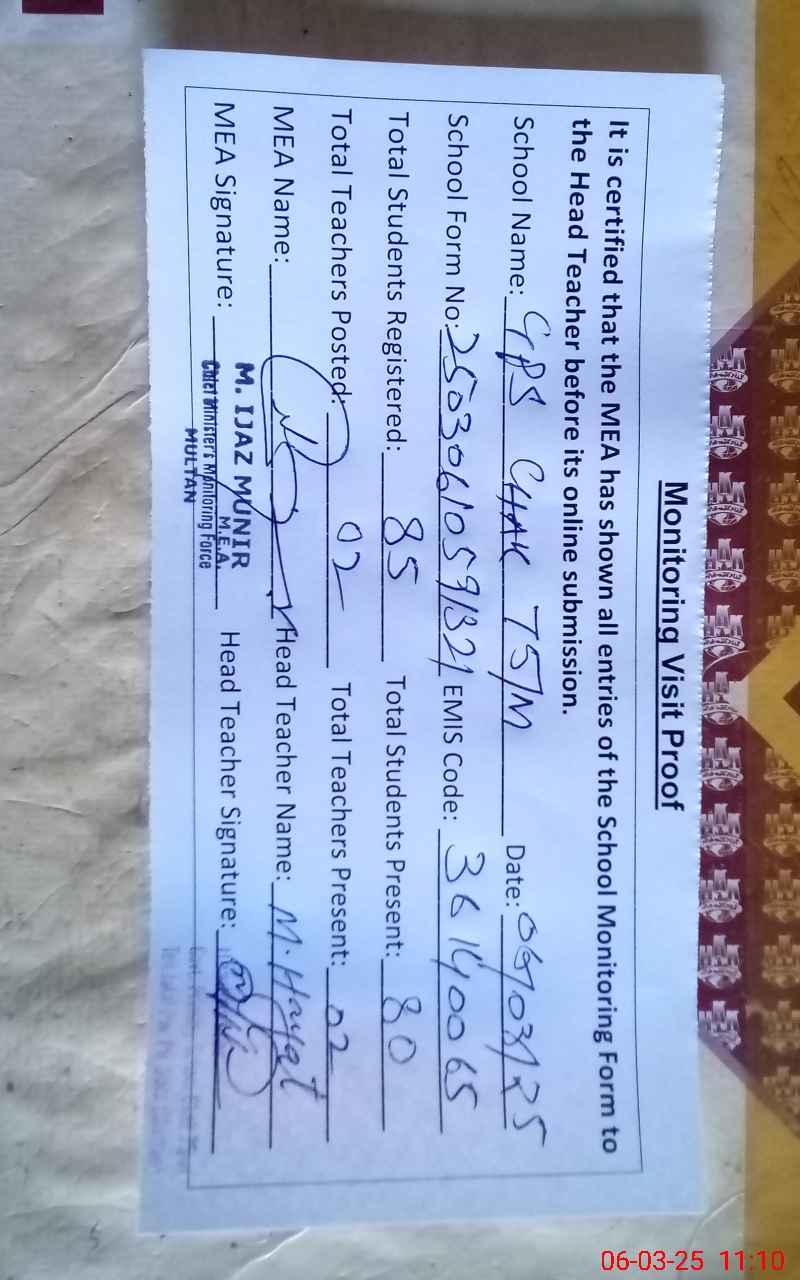 Monitoring Visit Proof
It is certified that the MEA has shown all entries of the School Monitoring Form to
the Head Teacher before its online submission.
School Name: GPS CHAK 75/M Date: 06/03/25
School Form No: 25030610591321 EMIS Code: 36140065
Total Students Registered: 85 Total Students Present: 80
Total Teachers Posted: 02 Total Teachers Present: 02
MEA Name: Head Teacher Name: M. Hayat
MEA Signature: Head Teacher Signature:
M. IJAZ MUNIR
M.E.A.
Chief Minister's Monitoring Force
MULTAN
06-03-25 11:10